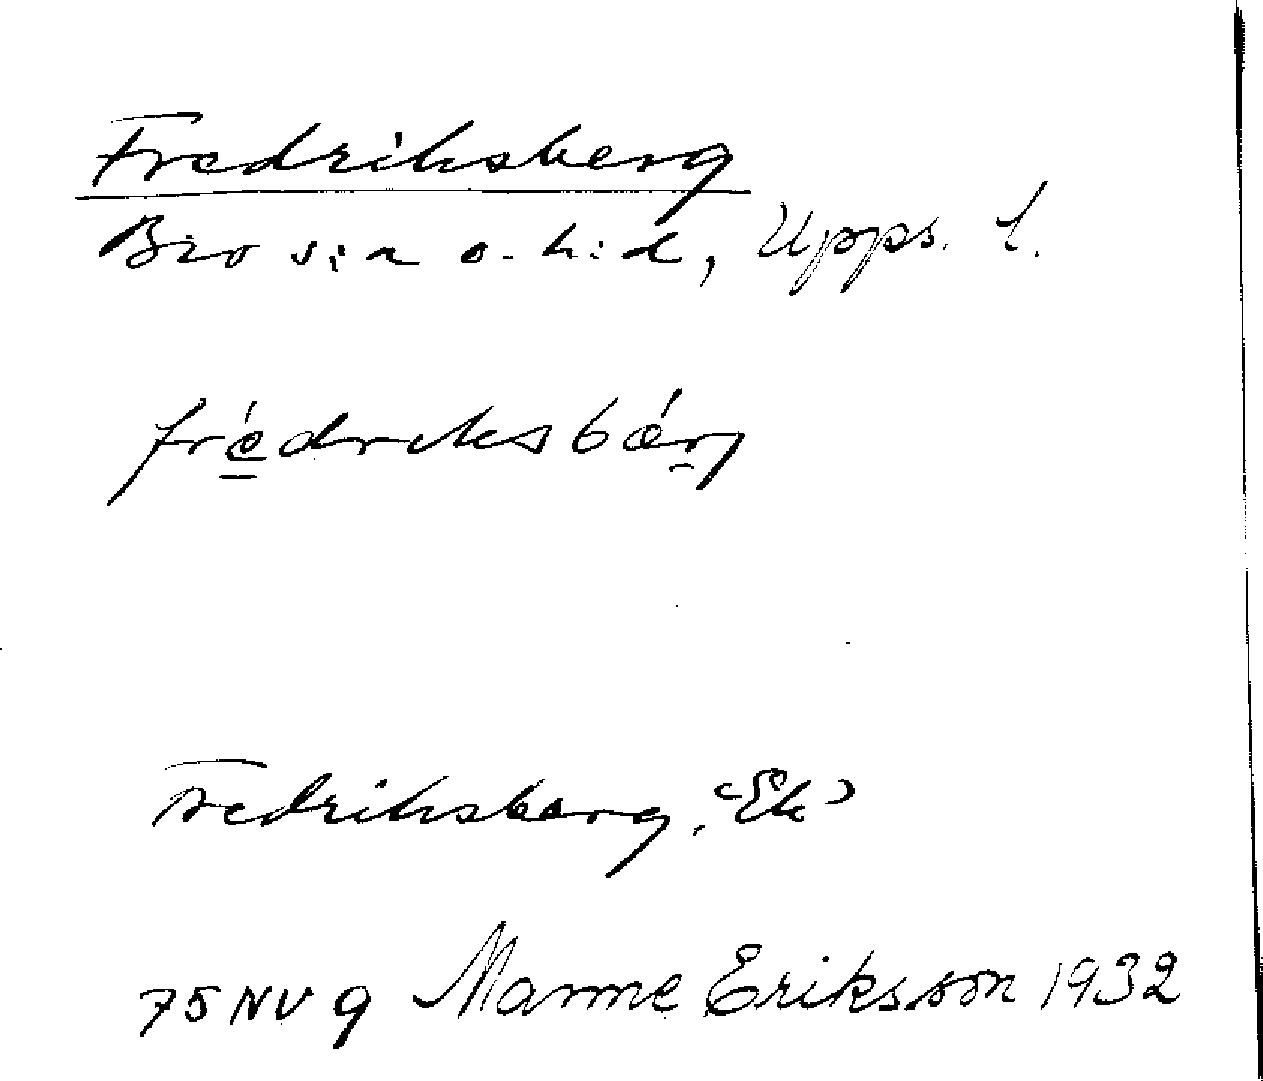 Fredriksberg
Bro s:n o. h:d, Upps. l.
frédriksbǽrg
Fredriksberg, "Ek"
75 NV 9 Manne Eriksson 1932